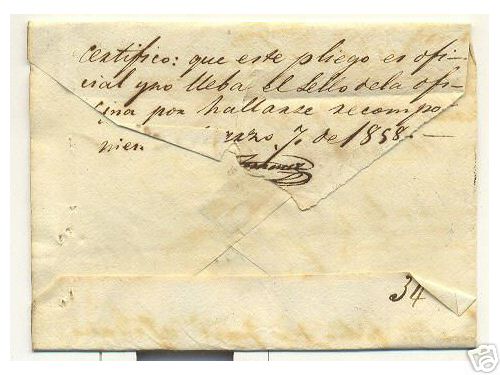 Certifico: que este pliego es ofi-
cial y no lleba el sello de la ofi-
cina por hallarse recompo-
nien rzo 7. de 1858.-
34